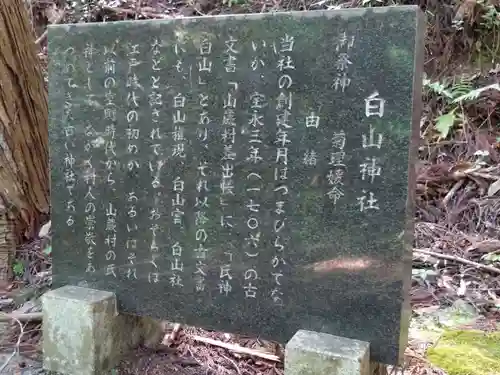 白山神社
御祭神 菊理媛命
由緒
当社の創建年月はつまびらかでな
いが、宝永三年(一七〇六)の古
文書「山蔵村差出帳」に、「氏神
白山」とあり、それ以降の古文書
にも、白山権現、白山宮、白山社
などと記されている。おそらくは
江戸時代の初めか、あるいはそれ
以前の室町時代から、山蔵村の氏
神として、村人の崇敬をあ
つめてきた古い神社である